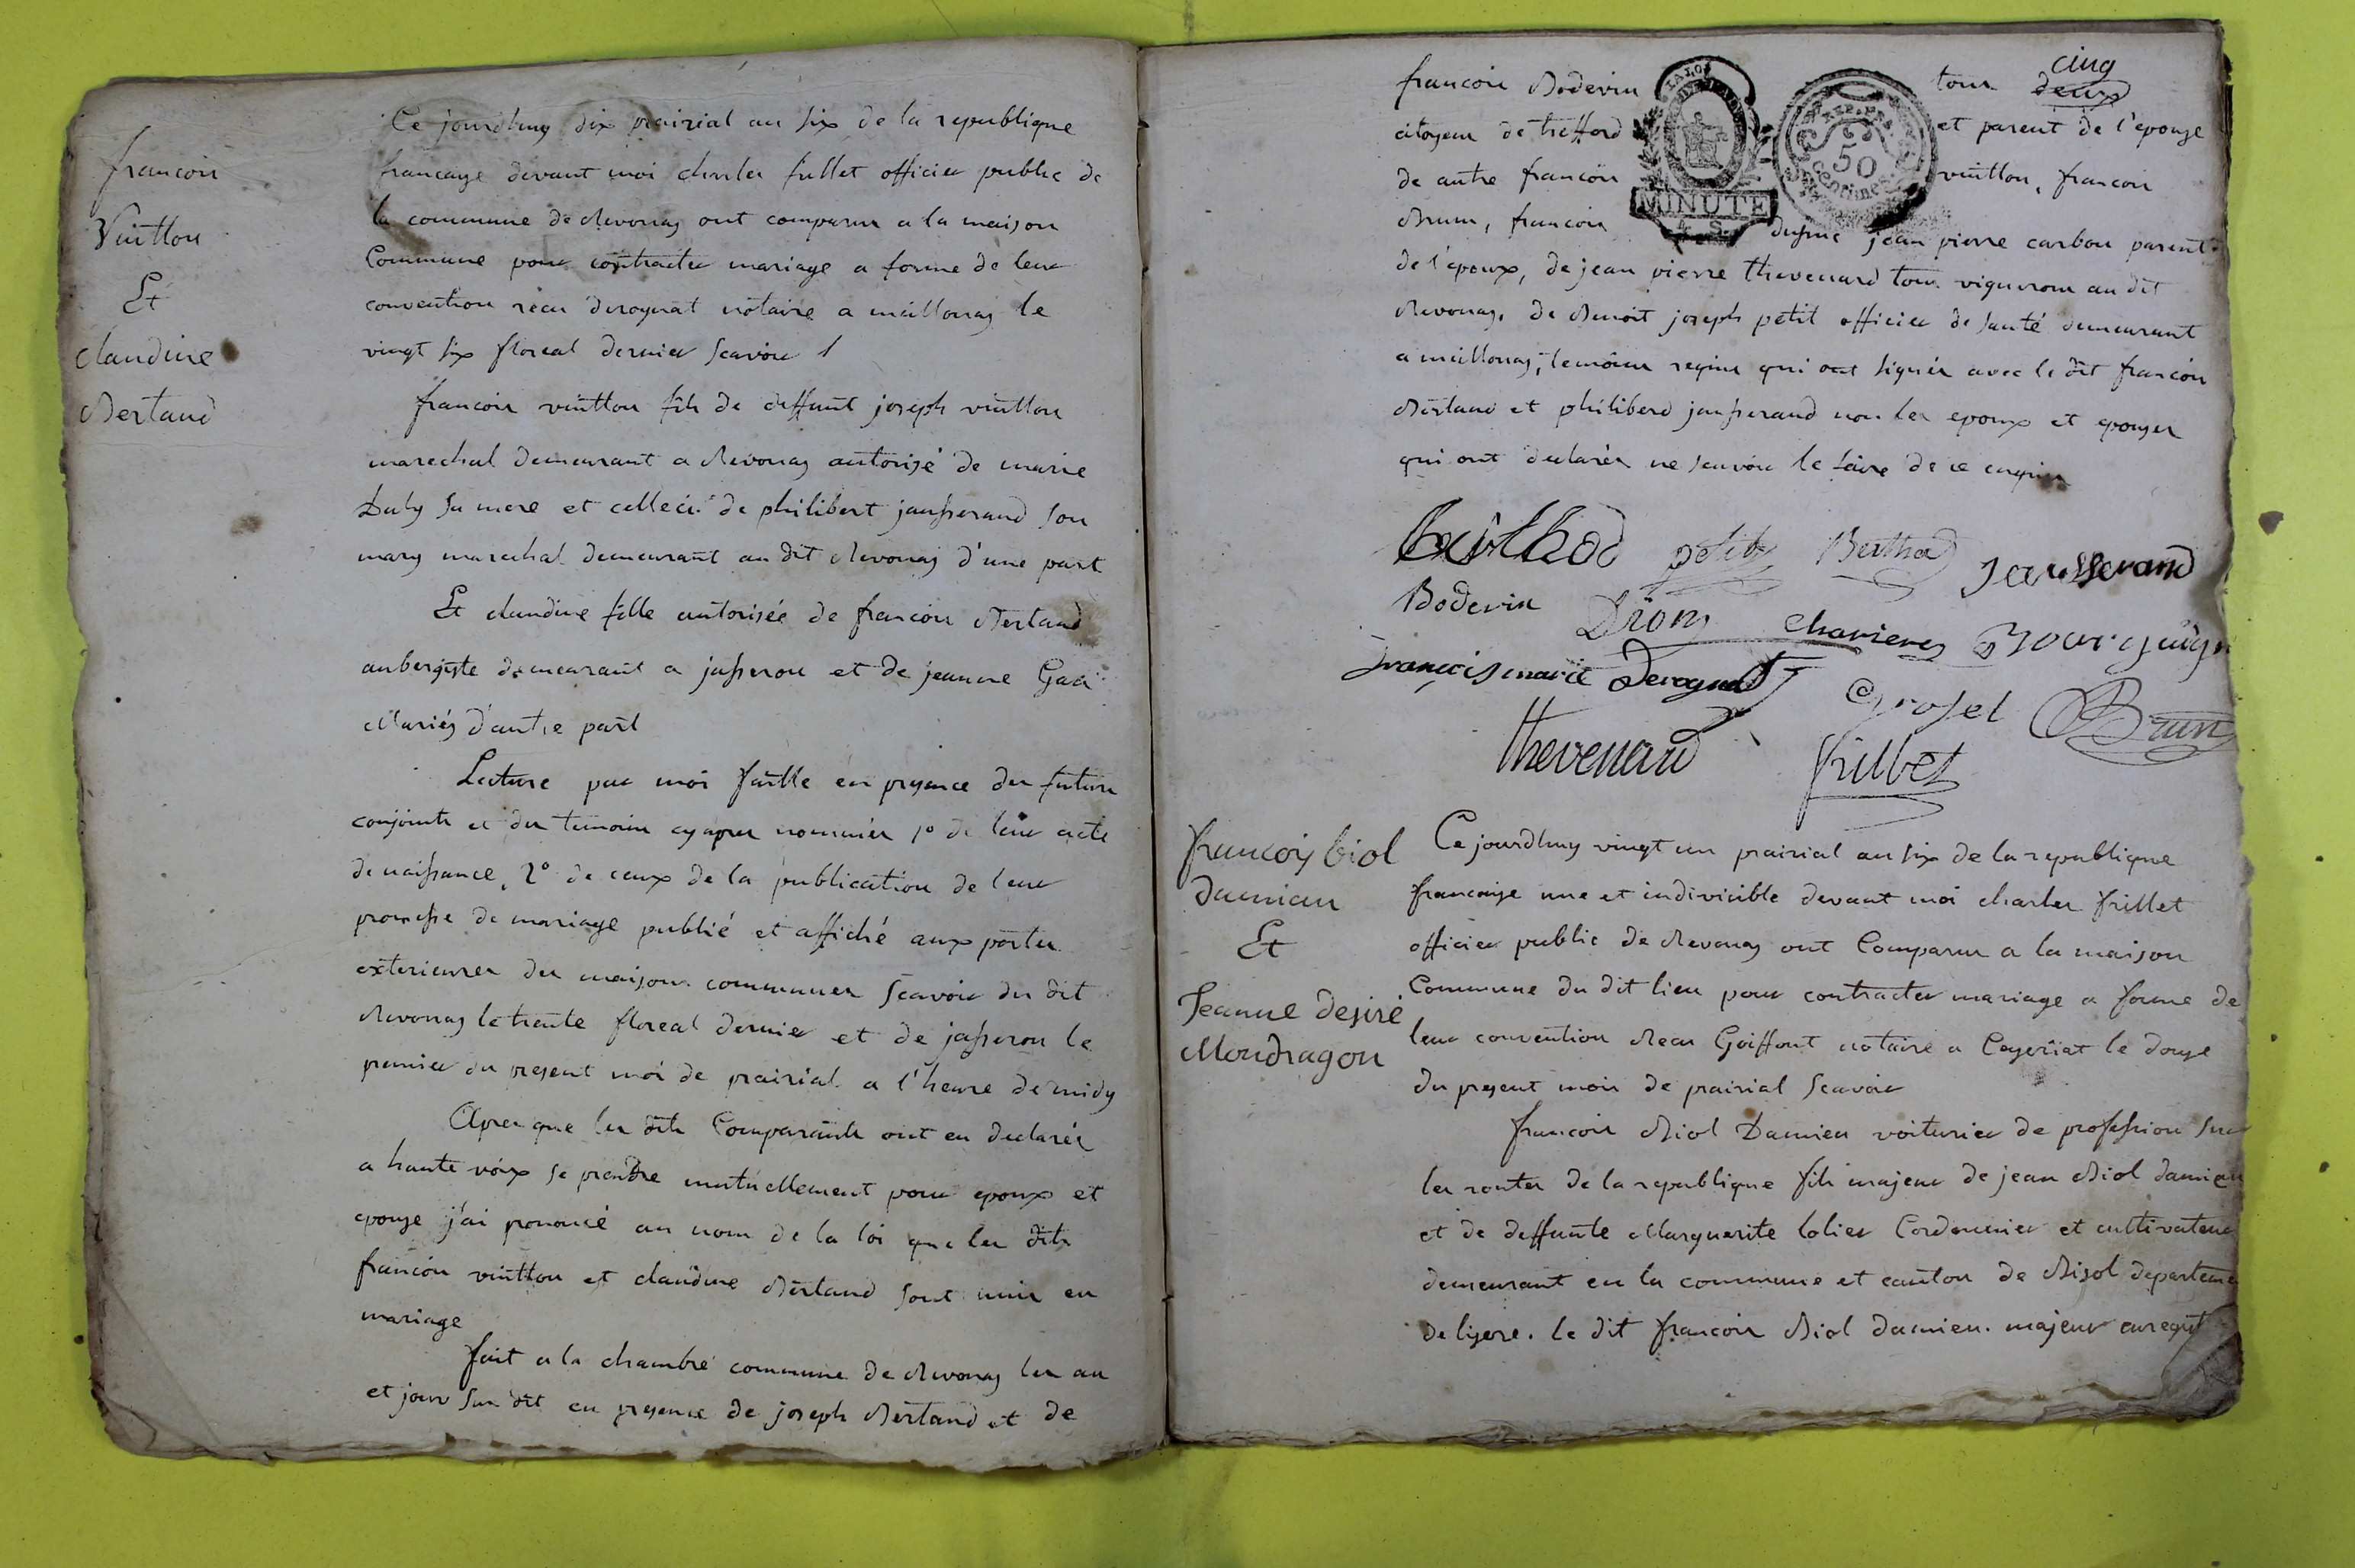 francois
Vuitton
Et
claudine
Bertaud
Ce jourdhuy dix prairial an six de la republique
francaise devant moi charles frillet officier public de
la commune de Revonas ont comparus a la maison
Commune pour contracter mariage a forme de leur
convention recu derognat notaire a meillonas le
vingt six floreal dernier scavoir
francois vuitton fils de deffunt joseph vuitton
marechal demeurant a Revonas autorisé de marie
sa mere et celleci de philibert jausserand son
mary marechal demeurant au dit Revonas d'une part
Et claudine fille autorisée de francois Bertaud
aubergiste demeurant a jasseron et de jeanne
Mariés d'autre part
Lecture par moi faitte en presence des futurs
conjoints et des temoins cyapres nommés 1º de leur acte
de naissance, 2º de ceux de la publication de leur
promesse de mariage publié et affiché aux portes
exterieures des maisons communes scavoir du dit
Revonas le trente floreal dernier et de jasseron le
premier du present moi de prairial a l'heure de midy
Apres que les dits Comparants ont eu declarés
a haute voix se prendre mutuellement pour epoux et
epouse j'ai prononcé au nom de la loi que les dits
francois vuitton et claudine Bertaud sont unis en
mariage
fait a la chambre commune de Revonas les an
et jour sus dit en presence de joseph Bertaud et de
cinq
francois Boderin tous deux
citoyens de trefford et parent de l'epouse
de autre francois vuitton, francois
Brun, francois jean pierre carbon parents
de l'epoux, de jean pierre thevenard tous vignerons au dit
Revonas, de Benoit joseph petit officier de santé demeurant
a meillonas, temoins requis qui ont signés avec le dit francois
Bertaud et philiberd jausserand non les epoux et epouses
qui ont declarés ne scavoir le faire de ce enquis
MINUTE
50
petit Berthod Jausserand
Boderin Dion
francois marie Derognat
Grosel Brun
thevenard frillet
francois biol
damien
Et
Jeanne desiré
Mondragon
Ce jourdhuy vingt un prairial an six de la republique
francaise une et indivicible devant moi charles frillet
officier public de Revonas ont Comparus a la maison
Commune du dit lieu pour contracter mariage a forme de
leur convention Recu Goiffont notaire a Ceyseriat le douse
du present mois de prairial scavoir
francois Biol Damien voiturier de profession sur
les routes de la republique fils majeur de jean Biol damien
et de deffunte Marguerite lolier Cordonnier et cultivateur
demeurant en la commune et canton de Bisol departeme
de lisere. le dit francois Biol damien. majeur